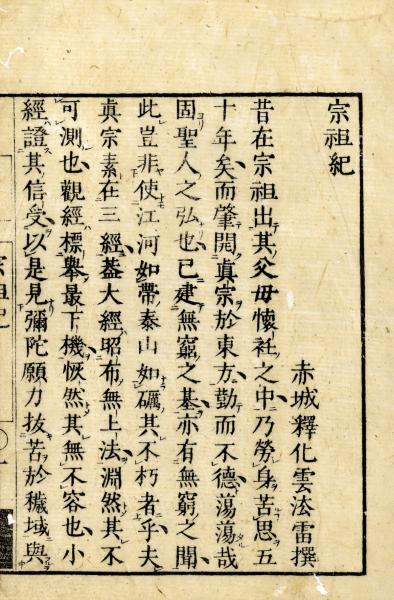 宗祖紀
赤城釋化雲法雷撰
昔在宗祖出其父母懷衽之中乃勞身苦思五
十年矣而肇開眞宗於東方勤而不德蕩蕩哉
固聖人之弘也已建無窮之基亦有無窮之聞
此豈非使江河如帶泰山如礪其不朽者乎夫
眞宗素在三經葢大經昭布無上法淵然其不
可測也觀經標舉最下機恢然其無不容也小
經證其信受以是見彌陀願力拔苦於穢域與